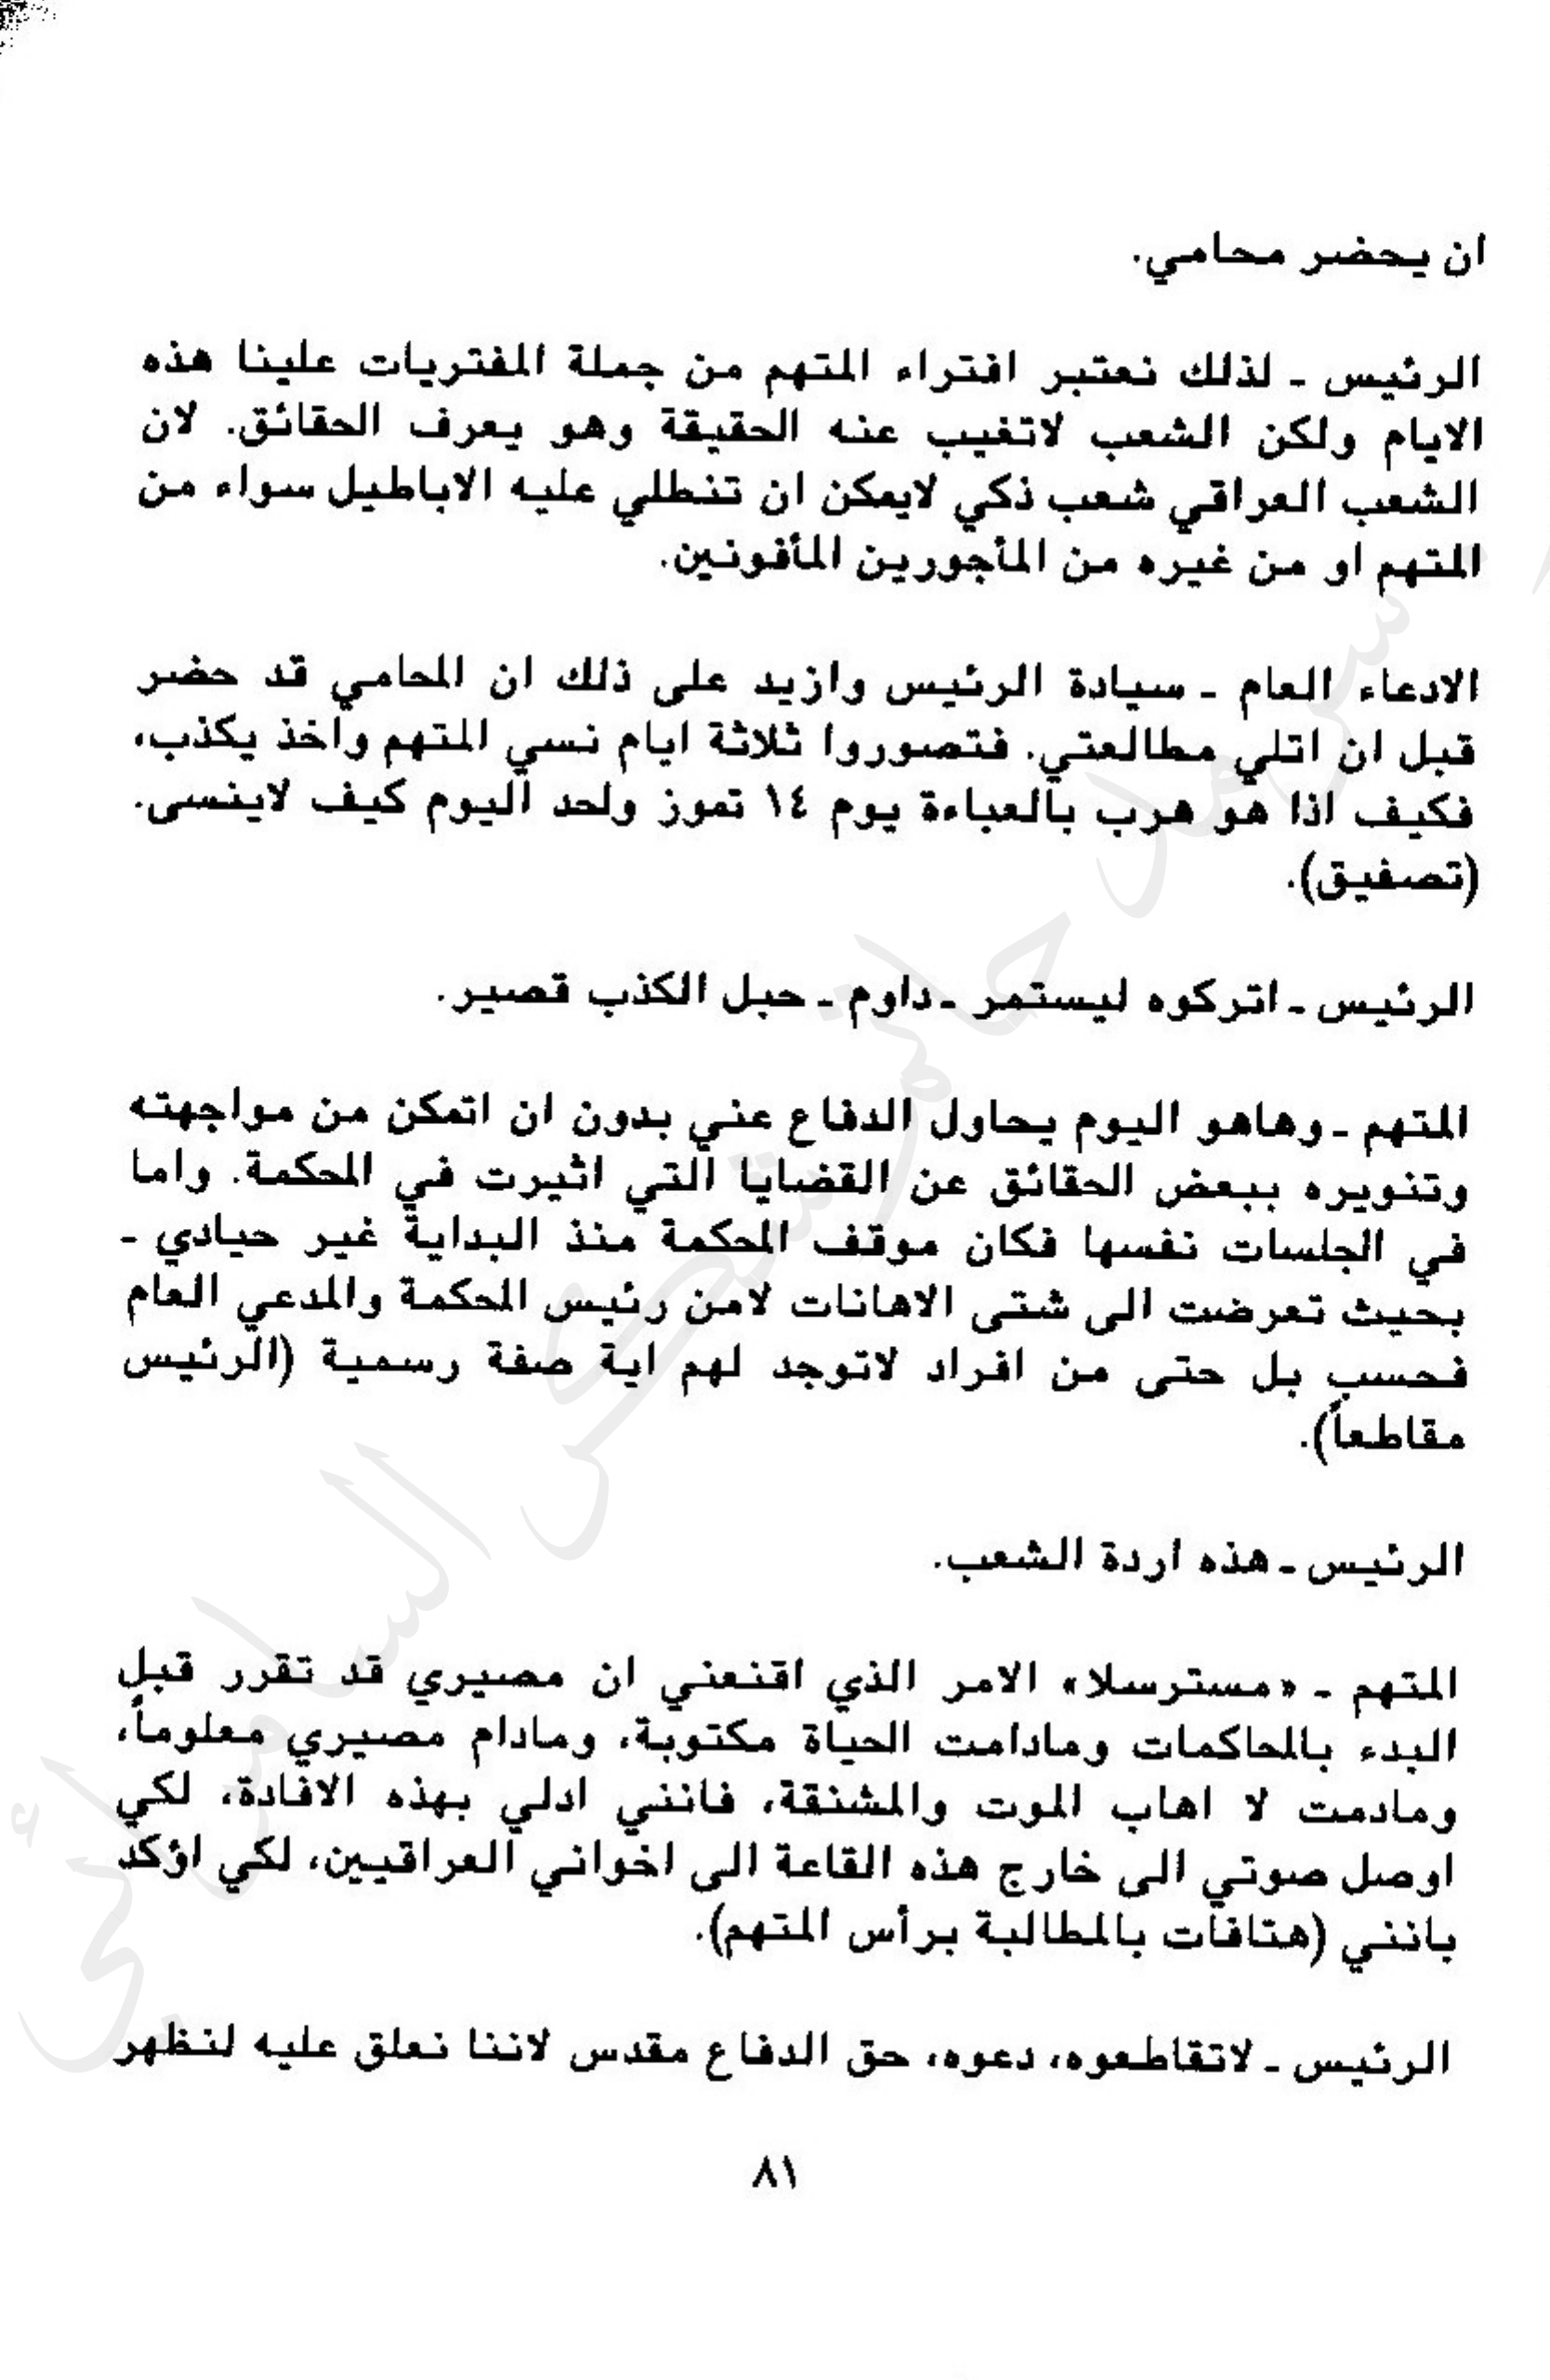 ان يحضر محامي.
الرئيس ـ لذلك نعتبر افتراء المتهم من جملة المفتريات علينا هذه
الايام ولكن الشعب لاتغيب عنه الحقيقة وهو يعرف الحقائق. لان
الشعب العراقي شعب ذكي لايمكن ان تنطلي عليه الاباطيل سواء من
المتهم او من غيره من المأجورين المأفونين.
الادعاء العام ـ سيادة الرئيس وازيد على ذلك ان المحامي قد حضر
قبل ان اتلي مطالعتي. فتصوروا ثلاثة ايام نسي المتهم واخذ يكذب،
فكيف اذا هو هرب بالعباءة يوم ١٤ تموز ولحد اليوم كيف لاينسى.
(تصفيق).
الرئيس ـ اتركوه ليستمر ـ داوم ـ حبل الكذب قصير.
المتهم ـ وهاهو اليوم يحاول الدفاع عني بدون ان اتمكن من مواجهته
وتنويره ببعض الحقائق عن القضايا التي اثيرت في المحكمة. واما
في الجلسات نفسها فكان موقف المحكمة منذ البداية غير حيادي ـ
بحيث تعرضت الى شتى الاهانات لامن رئيس المحكمة والمدعي العام
فحسب بل حتى من افراد لاتوجد لهم اية صفة رسمية (الرئيس
مقاطعاً).
الرئيس ـ هذه اردة الشعب.
المتهم ـ «مسترسلا» الامر الذي اقنعني ان مصيري قد تقرر قبل
البدء بالمحاكمات ومادامت الحياة مكتوبة، ومادام مصيري معلوماً،
ومادمت لا اهاب الموت والمشنقة، فانني ادلي بهذه الافادة، لكي
اوصل صوتي الى خارج هذه القاعة الى اخواني العراقيين، لكي اؤكد
بانني (هتافات بالمطالبة برأس المتهم).
الرئيس ـ لاتقاطعوه، دعوه، حق الدفاع مقدس لاننا نعلق عليه لنظهر
٨١